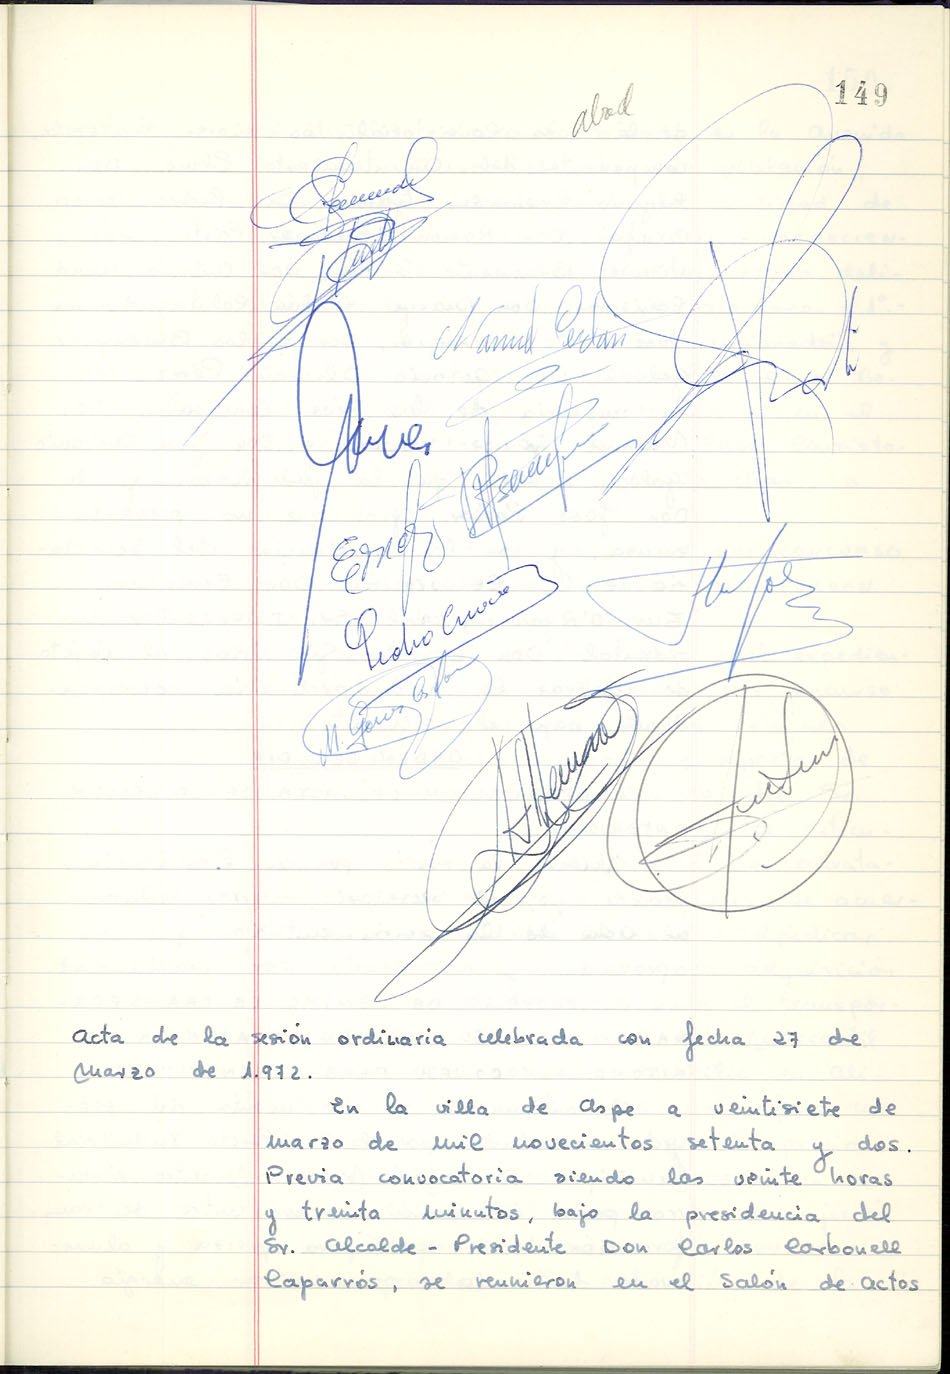 149
abad
Manuel Cerdán
Pedro Cuenca
acta de la sesión ordinaria celebrada con fecha 27 de
Marzo de 1.972.
En la villa de Aspe a veintisiete de
marzo de mil novecientos setenta y dos.
Previa convocatoria siendo las veinte horas
y treinta minutos, bajo la presidencia del
Sr. Alcalde - Presidente Don Carlos Carbonell
Caparrós, se reunieron en el Salón de actos